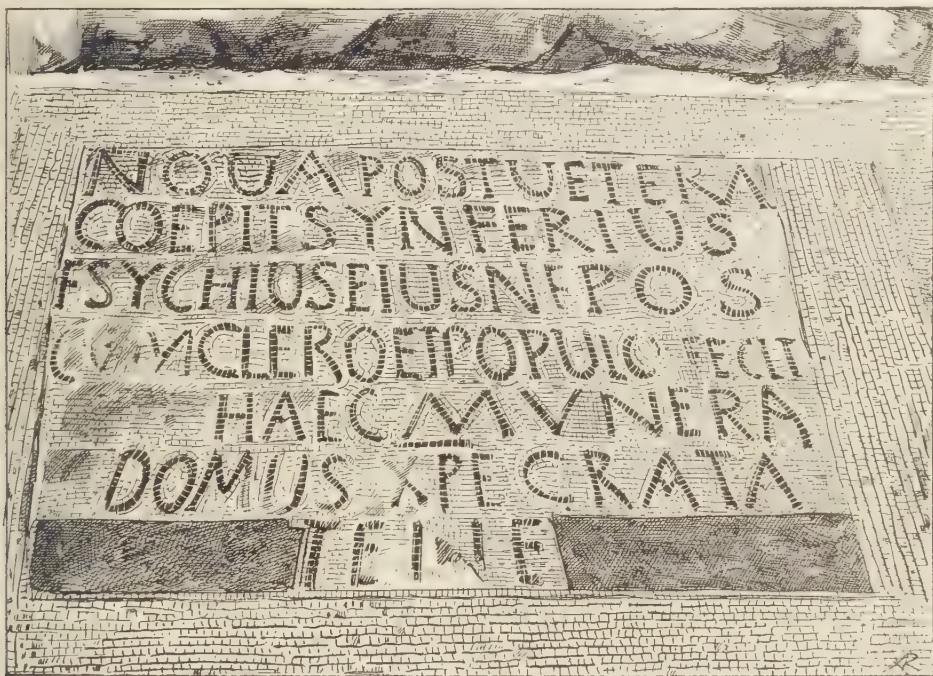 NOUA POST UETERA
COEPIT SYNFERIUS
ESYCHIUS EIUS NEPOS
CUM CLERO ET POPULO FECIT
HAEC MVNERA
DOMUS XPE GRATA
TENE
XR